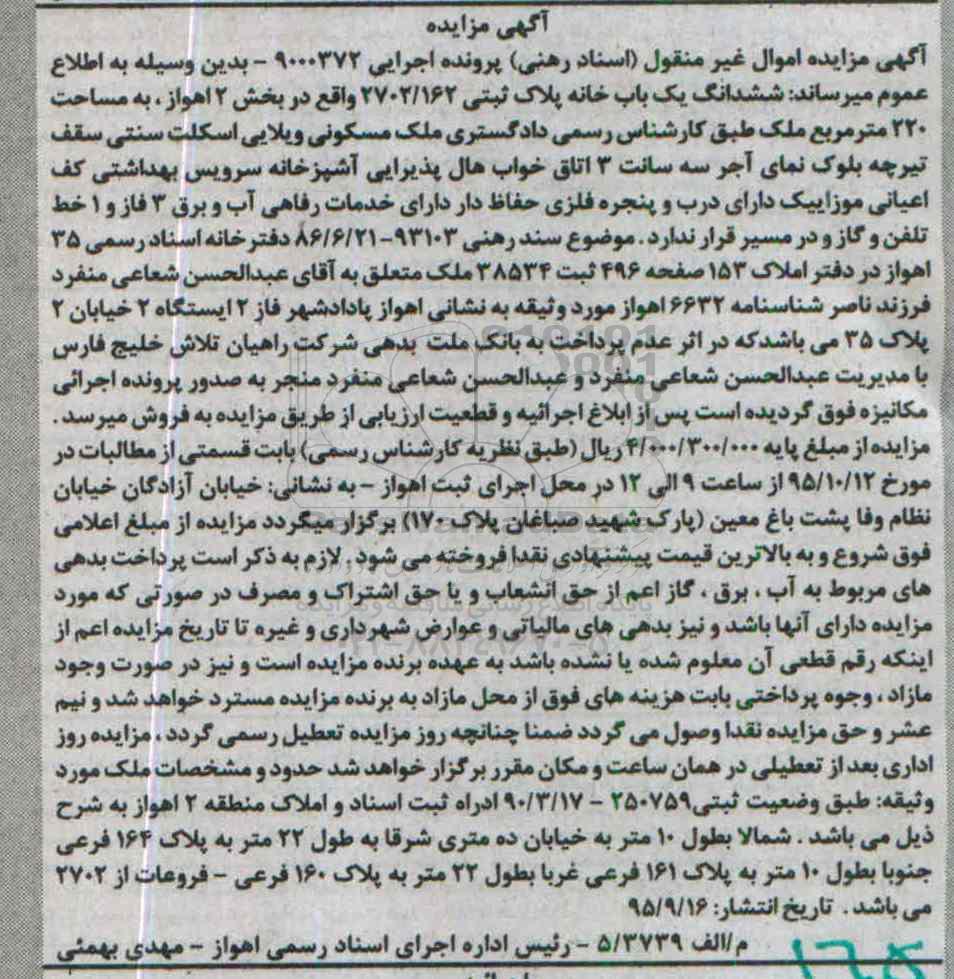 آگهی مزایده
آگهی مزایده اموال غیر منقول (اسناد رهنی) پرونده اجرایی ۹۰۰۰۳۷۲ - بدین وسیله به اطلاع
عموم میرساند: ششدانگ یک باب خانه پلاک ثبتی ۲۷۰۲/۱۶۲ واقع در بخش ۲ اهواز ، به مساحت
۲۲۰ مترمربع ملک طبق کارشناس رسمی دادگستری ملک مسکونی ویلایی اسکلت سنتی سقف
تیرچه بلوک نمای آجر سه سانت ۳ اتاق خواب هال پذیرایی آشپزخانه سرویس بهداشتی کف
اعیانی موزاییک دارای درب و پنجره فلزی حفاظ دار دارای خدمات رفاهی آب و برق ۳ فاز و ۱ خط
تلفن و گاز و در مسیر قرار ندارد . موضوع سند رهنی ۹۳۱۰۳-۸۶/۶/۲۱ دفترخانه اسناد رسمی ۳۵
اهواز در دفتر املاک ۱۵۳ صفحه ۴۹۶ ثبت ۳۸۵۳۴ ملک متعلق به آقای عبدالحسن شعاعی منفرد
فرزند ناصر شناسنامه ۶۶۳۲ اهواز مورد وثیقه به نشانی اهواز پادادشهر فاز ۲ ایستگاه ۲ خیابان ۲
پلاک ۳۵ می باشدکه در اثر عدم پرداخت به بانک ملت بدهی شرکت راهیان تلاش خلیج فارس
با مدیریت عبدالحسن شعاعی منفرد و عبدالحسن شعاعی منفرد منجر به صدور پرونده اجرائی
مکانیزه فوق گردیده است پس از ابلاغ اجرائیه و قطعیت ارزیابی از طریق مزایده به فروش میرسد .
مزایده از مبلغ پایه ۴/۰۰۰/۳۰۰/۰۰۰ ریال (طبق نظریه کارشناس رسمی) بابت قسمتی از مطالبات در
مورخ ۹۵/۱۰/۱۲ از ساعت ۹ الی ۱۲ در محل اجرای ثبت اهواز - به نشانی: خیابان آزادگان خیابان
نظام وفا پشت باغ معین (پارک شهید صباغان پلاک ۱۷۰) برگزار میگردد مزایده از مبلغ اعلامی
فوق شروع و به بالاترین قیمت پیشنهادی نقدا فروخته می شود . لازم به ذکر است پرداخت بدهی
های مربوط به آب ، برق ، گاز اعم از حق انشعاب و یا حق اشتراک و مصرف در صورتی که مورد
مزایده دارای آنها باشد و نیز بدهی های مالیاتی و عوارض شهرداری و غیره تا تاریخ مزایده اعم از
اینکه رقم قطعی آن معلوم شده یا نشده باشد به عهده برنده مزایده است و نیز در صورت وجود
مازاد ، وجوه پرداختی بابت هزینه های فوق از محل مازاد به برنده مزایده مسترد خواهد شد و نیم
عشر و حق مزایده نقدا وصول می گردد ضمنا چنانچه روز مزایده تعطیل رسمی گردد ، مزایده روز
اداری بعد از تعطیلی در همان ساعت و مکان مقرر برگزار خواهد شد حدود و مشخصات ملک مورد
وثیقه: طبق وضعیت ثبتی۲۵۰۷۵۹ - ۹۰/۳/۱۷ ادراه ثبت اسناد و املاک منطقه ۲ اهواز به شرح
ذیل می باشد . شمالا بطول ۱۰ متر به خیابان ده متری شرقا به طول ۲۲ متر به پلاک ۱۶۴ فرعی
جنوبا بطول ۱۰ متر به پلاک ۱۶۱ فرعی غربا بطول ۲۲ متر به پلاک ۱۶۰ فرعی - فروعات از ۲۷۰۲
می باشد . تاریخ انتشار: ۹۵/۹/۱۶
م/الف ۵/۳۷۳۹ - رئیس اداره اجرای اسناد رسمی اهواز - مهدی بهمئی